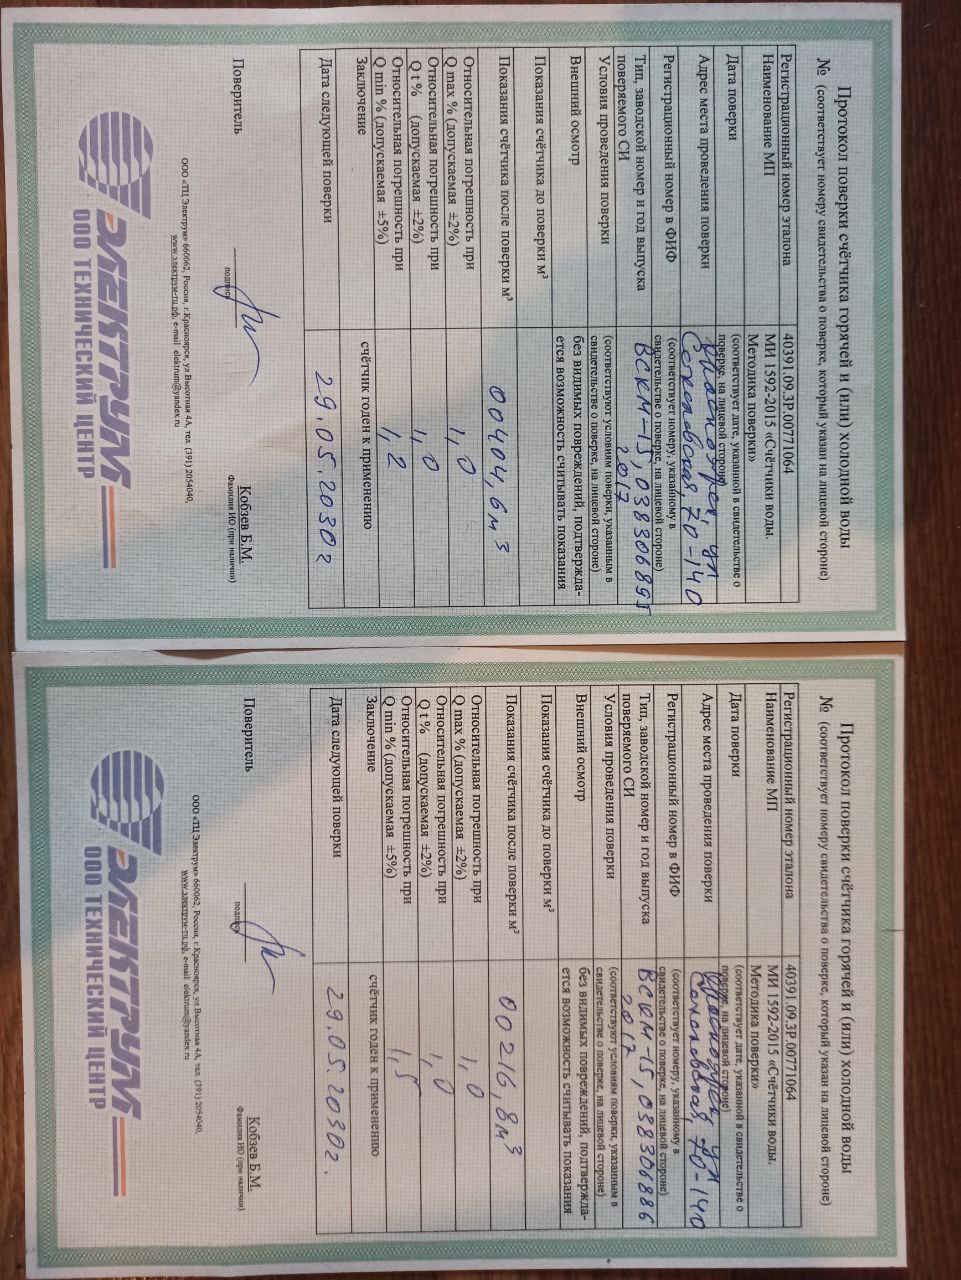 Протокол поверки счётчика горячей и (или) холодной воды
№ (соответствует номеру свидетельства о поверке, который указан на лицевой стороне)
Регистрационный номер эталона 40391.09.3Р.00771064
Наименование МП МИ 1592-2015 «Счётчики воды.
Методика поверки»
Дата поверки (соответствует дате, указанной в свидетельстве о
поверке, на лицевой стороне)
Адрес места проведения поверки ул
70-140
Регистрационный номер в ФИФ (соответствует номеру, указанному в
свидетельстве о поверке, на лицевой стороне)
Тип, заводской номер и год выпуска ВСКМ-15, 038306895
поверяемого СИ 2017
Условия проведения поверки (соответствуют условиям поверки, указанным в
свидетельстве о поверке, на лицевой стороне)
Внешний осмотр без видимых повреждений, подтвержда-
ется возможность считывать показания
Показания счётчика до поверки м³
Показания счётчика после поверки м³ 00404,6м³
Относительная погрешность при
Q max % (допускаемая ±2%) 1,0
Относительная погрешность при
Q t % (допускаемая ±2%) 1,0
Относительная погрешность при
Q min % (допускаемая ±5%) 1,2
Заключение счётчик годен к применению
Дата следующей поверки 29.05.2030г
Поверитель
подпись
Кобзев Б.М.
Фамилия ИО (при наличии)
ООО «ТЦ Электрум» 660062, Россия, г.Красноярск, ул Высотная 4А, тел. (391) 2054040,
www.электрум-тц.рф, e-mail elektrum@yandex.ru
ЭЛЕКТРУМ
ООО ТЕХНИЧЕСКИЙ ЦЕНТР
Протокол поверки счётчика горячей и (или) холодной воды
№ (соответствует номеру свидетельства о поверке, который указан на лицевой стороне)
Регистрационный номер эталона 40391.09.3Р.00771064
Наименование МП МИ 1592-2015 «Счётчики воды.
Методика поверки»
Дата поверки (соответствует дате, указанной в свидетельстве о
поверке, на лицевой стороне)
Адрес места проведения поверки ул
70-140
Регистрационный номер в ФИФ (соответствует номеру, указанному в
свидетельстве о поверке, на лицевой стороне)
Тип, заводской номер и год выпуска ВСКМ-15, 038306886
поверяемого СИ 2017
Условия проведения поверки (соответствуют условиям поверки, указанным в
свидетельстве о поверке, на лицевой стороне)
Внешний осмотр без видимых повреждений, подтвержда-
ется возможность считывать показания
Показания счётчика до поверки м³
Показания счётчика после поверки м³ 00216,8м³
Относительная погрешность при
Q max % (допускаемая ±2%) 1,0
Относительная погрешность при
Q t % (допускаемая ±2%) 1,0
Относительная погрешность при
Q min % (допускаемая ±5%) 1,5
Заключение счётчик годен к применению
Дата следующей поверки 29.05.2030г.
Поверитель
подпись
Кобзев Б.М.
Фамилия ИО (при наличии)
ООО «ТЦ Электрум» 660062, Россия, г.Красноярск, ул Высотная 4А, тел. (391) 2054040,
www.электрум-тц.рф, e-mail elektrum@yandex.ru
ЭЛЕКТРУМ
ООО ТЕХНИЧЕСКИЙ ЦЕНТР